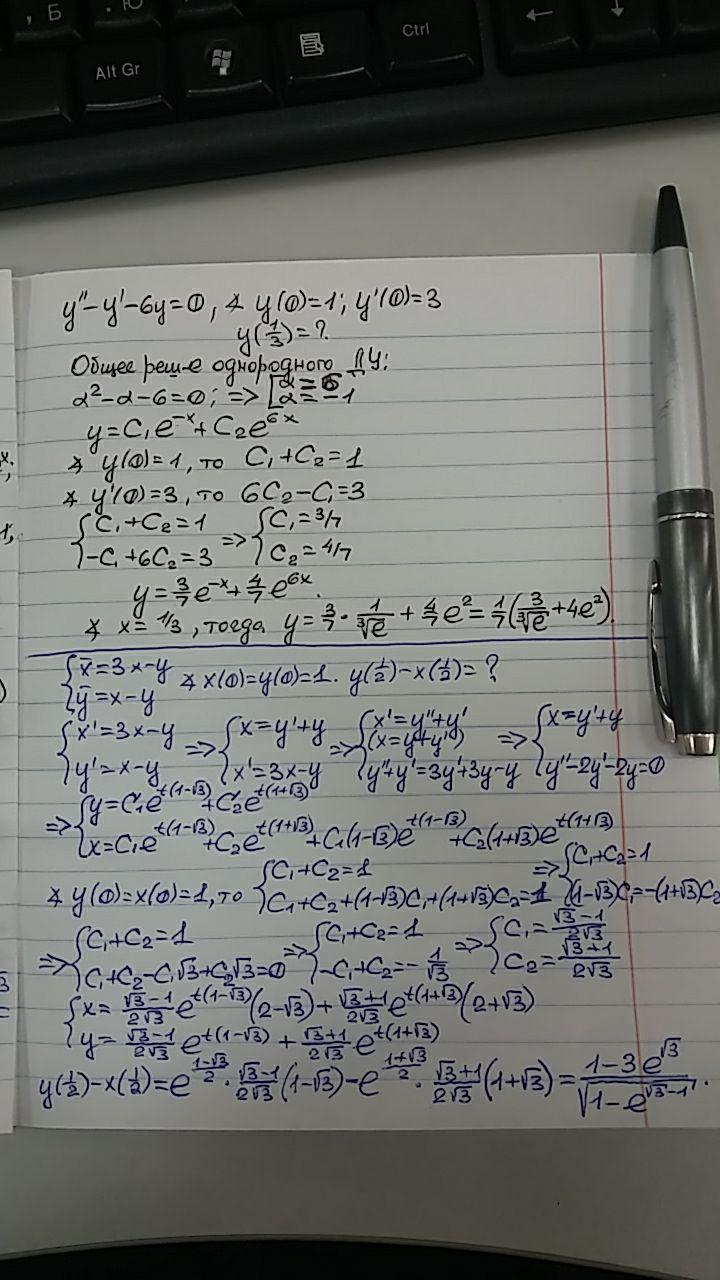 Б
Ю
Alt Gr
Ctrl
y''-y'-6y=0, ∢ y(0)=1; y'(0)=3
y(1/3)=?
Общее реш-е однородного ДУ:
α²-α-6=0; => [α=6 α=-1
y=C₁e^(-x)+C₂e^(6x)
∢ y(0)=1, то C₁+C₂=1
∢ y'(0)=3, то 6C₂-C₁=3
{C₁+C₂=1 -C₁+6C₂=3 => {C₁=3/7 C₂=4/7
y=3/7 e^(-x)+4/7 e^(6x).
∢ x=1/3, тогда y=3/7·1/∛e+4/7 e²=1/7(3/∛e+4e²).
{x̄=3x-y ȳ=x-y ∢ x(0)=y(0)=1. y(1/2)-x(1/2)=?
{x'=3x-y y'=x-y => {x=y'+y x'=3x-y => {x'=y''+y' (x=y+y') y''+y'=3y'+3y-y => {x=y'+y y''-2y'-2y=0
=> {y=C₁e^(t(1-√3))+C₂e^(t(1+√3)) x=C₁e^(t(1-√3))+C₂e^(t(1+√3))+C₁(1-√3)e^(t(1-√3))+C₂(1+√3)e^(t(1+√3))
∢ y(0)=x(0)=1, то {C₁+C₂=1 C₁+C₂+(1-√3)C₁+(1+√3)C₂=1 => {C₁+C₂=1 (1-√3)C₁=-(1+√3)C₂
=> {C₁+C₂=1 C₁+C₂-C₁√3+C₂√3=0 => {C₁+C₂=1 -C₁+C₂=-1/√3 => {C₁=(√3-1)/(2√3) C₂=(√3+1)/(2√3)
{x=(√3-1)/(2√3) e^(t(1-√3))(2-√3)+(√3+1)/(2√3) e^(t(1+√3))(2+√3)
y=(√3-1)/(2√3) e^(t(1-√3))+(√3+1)/(2√3) e^(t(1+√3))
y(1/2)-x(1/2)=e^((1-√3)/2)·(√3-1)/(2√3)(1-√3)-e^((1+√3)/2)·(√3+1)/(2√3)(1+√3)=(1-3e^(√3))/√(1-e^(√3-1)).